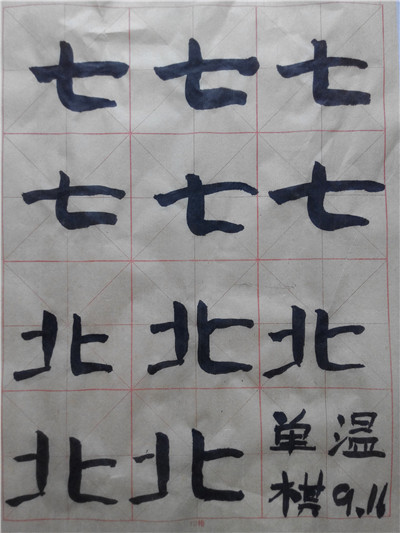 七七七
七七七
北北北
北北
单温
棋9.16